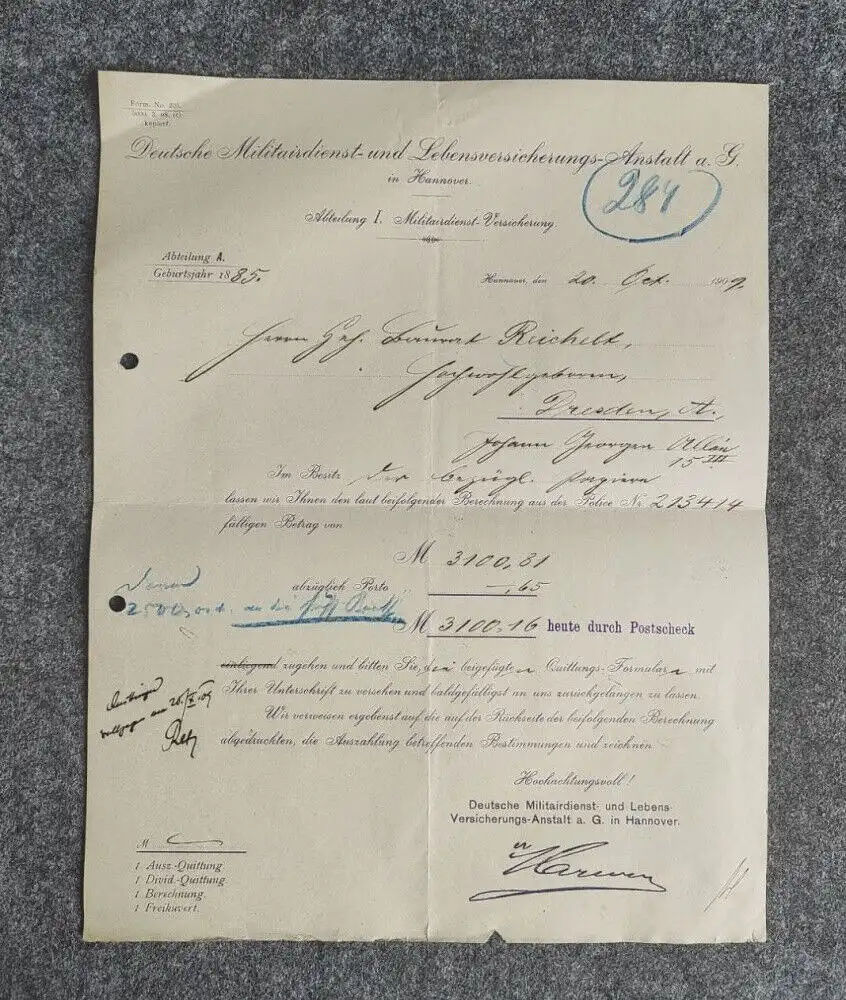 Form. No. 
kopiert.
Deutsche Militairdienst- und Lebensversicherungs-Anstalt a. G.
in Hannover.
284
Abteilung I. Militairdienst-Versicherung.
Abteilung A.
Geburtsjahr 1885.
Hannover, den 20. Oct. 1909.
Herrn Geh. Baurat Reichelt,
Hochwohlgeboren,
Dresden, A.,
Johann Georgen Allée
15 III
Im Besitz der bezügl. Papiere
lassen wir Ihnen den laut beifolgender Berechnung aus der Police Nr. 213414
fälligen Betrag von
M 3100,81
abzüglich Porto -,65
2500 an die
M 3100,16 heute durch Postscheck
einliegend zugehen und bitten Sie, die beigefügten Quittungs-Formulare mit
Ihrer Unterschrift zu versehen und baldgefälligst an uns zurückgelangen zu lassen.
Wir verweisen ergebenst auf die auf der Rückseite der beifolgenden Berechnung
abgedruckten, die Auszahlung betreffenden Bestimmungen und zeichnen
Hochachtungsvoll!
Deutsche Militairdienst- und Lebens-
Versicherungs-Anstalt a. G. in Hannover.
M
1 Ausz.-Quittung.
1 Divid.-Quittung.
1 Berechnung.
1 Freikuvert.